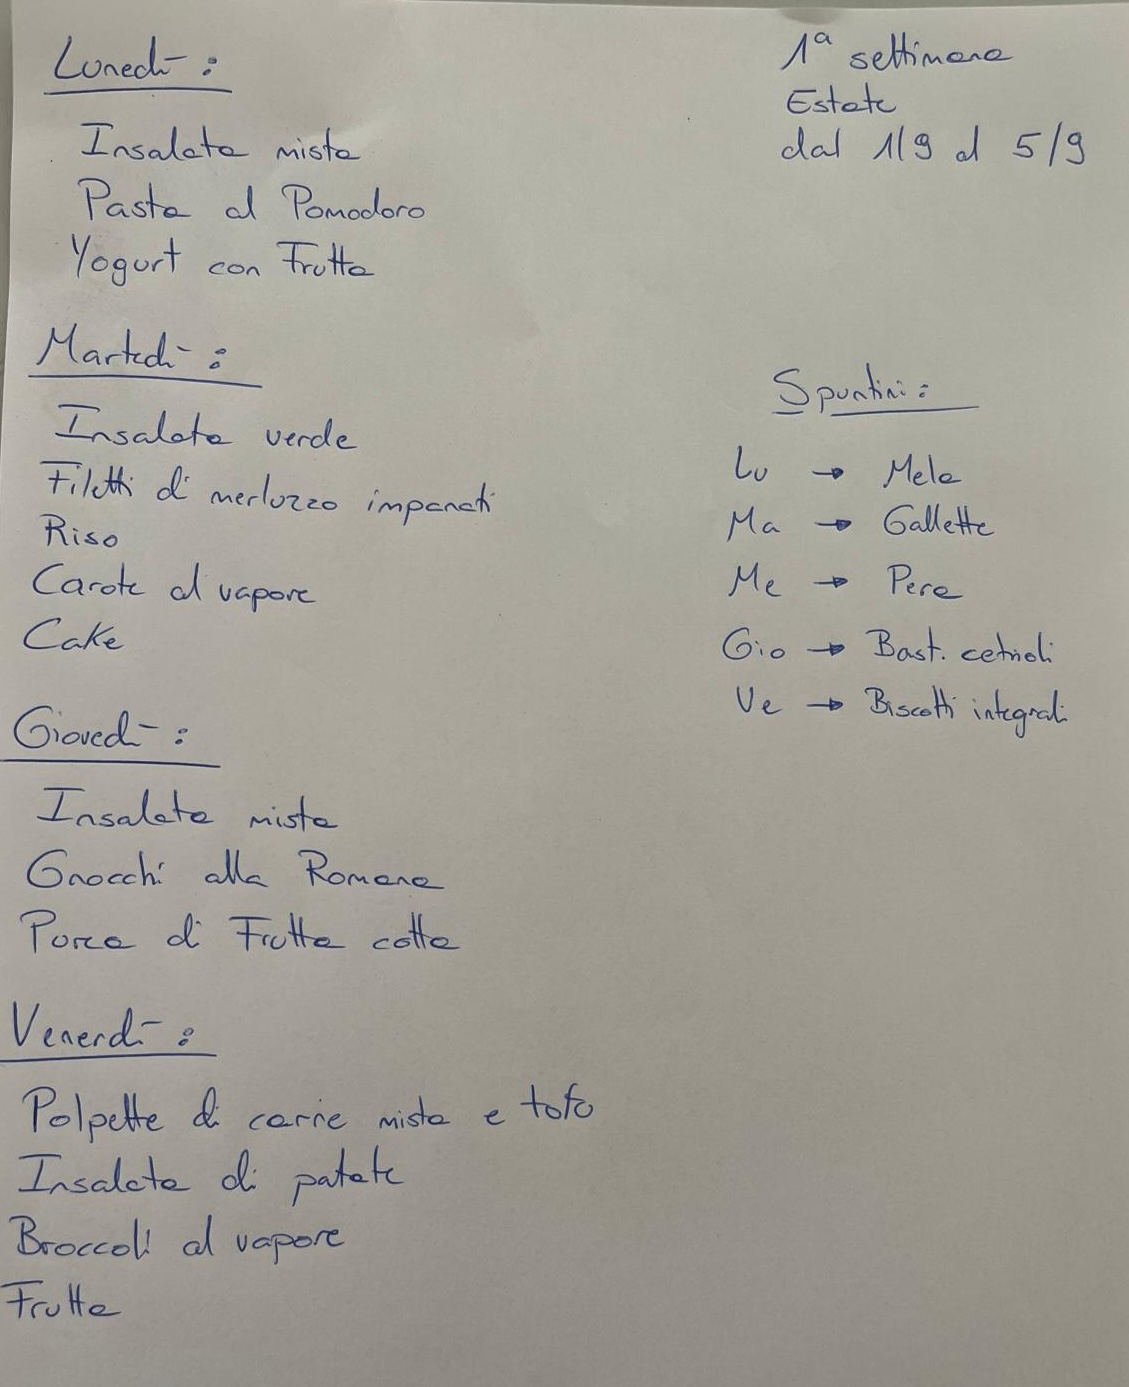 Lunedì:
Insalata mista
Pasta al Pomodoro
Yogurt con Frutta
Martedì:
Insalata verde
Filetti di merluzzo impanati
Riso
Carote al vapore
Cake
Giovedì:
Insalata mista
Gnocchi alla Romana
Purea di Frutta cotta
Venerdì:
Polpette di carne mista e tofu
Insalata di patate
Broccoli al vapore
Frutta
1ª settimana
Estate
dal 1/9 al 5/9
Spuntini:
Lu → Mela
Ma → Gallette
Me → Pera
Gio → Bast. cetrioli
Ve → Biscotti integrali